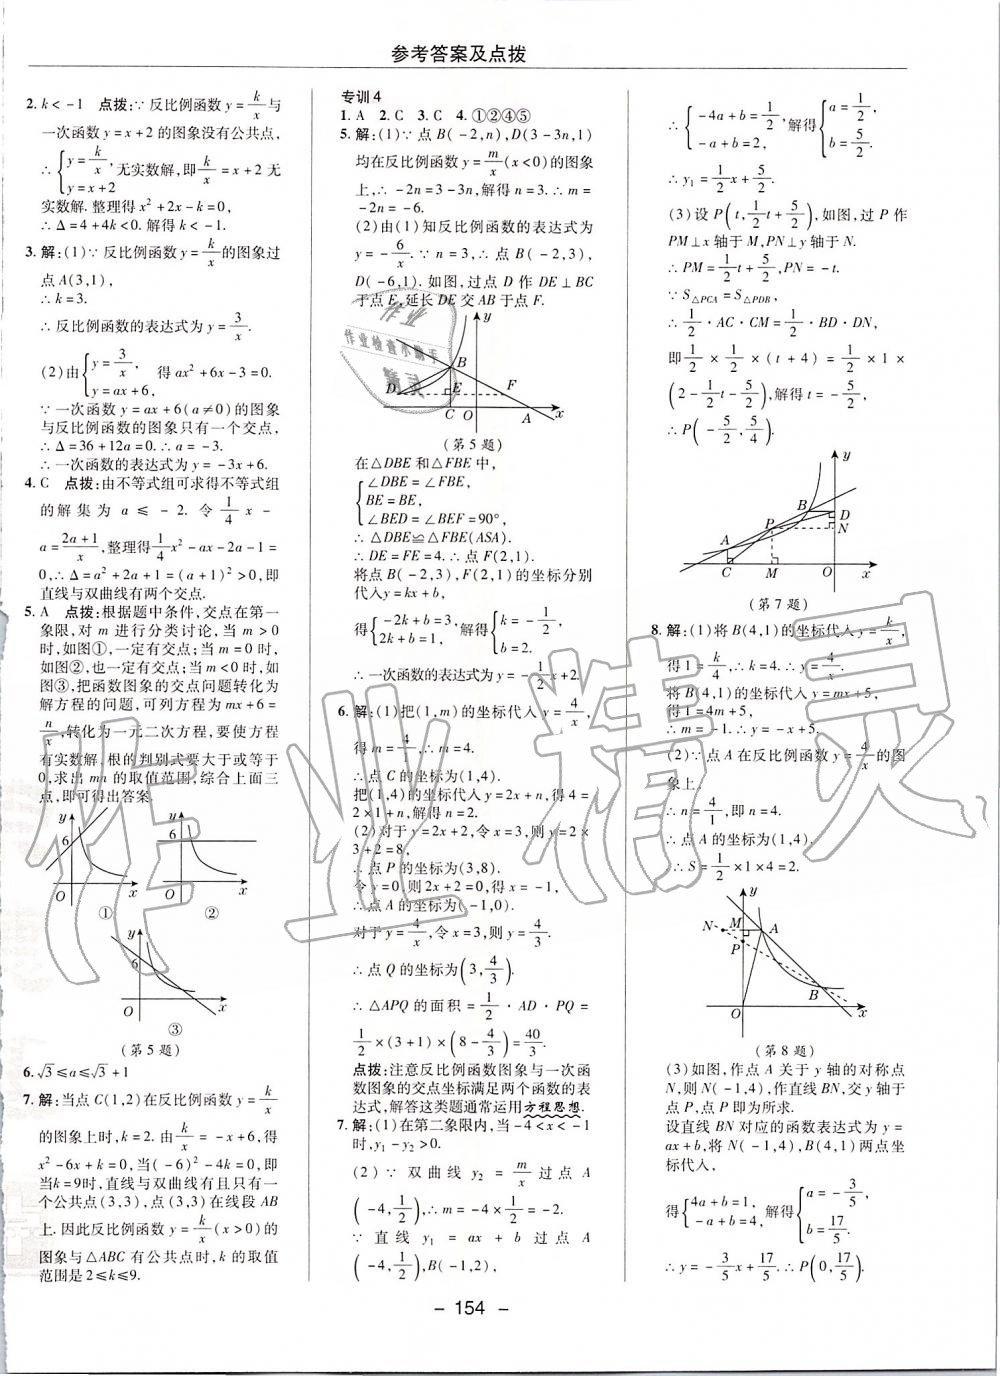 参考答案及点拨
2. k<-1 点拨:∵反比例函数 y=k/x 与
一次函数 y=x+2 的图象没有公共点,
∴{y=k/x, y=x+2 无实数解,即 k/x=x+2 无
实数解.整理得 x²+2x-k=0,
∴Δ=4+4k<0. 解得 k<-1.
3. 解:(1)∵反比例函数 y=k/x 的图象过
点 A(3,1),
∴k=3.
∴反比例函数的表达式为 y=3/x.
(2)由{y=3/x, y=ax+6, 得 ax²+6x-3=0.
∵一次函数 y=ax+6(a≠0)的图象
与反比例函数的图象只有一个交点,
∴Δ=36+12a=0. ∴a=-3.
∴一次函数的表达式为 y=-3x+6.
4. C 点拨:由不等式组可求得不等式组
的解集为 a≤-2. 令 1/4 x-
a=(2a+1)/x,整理得 1/4 x²-ax-2a-1=
0,∴Δ=a²+2a+1=(a+1)²>0,即
直线与双曲线有两个交点.
5. A 点拨:根据题中条件,交点在第一
象限,对 m 进行分类讨论,当 m>0
时,如图①,一定有交点;当 m=0 时,
如图②,也一定有交点;当 m<0 时,如
图③,把函数图象的交点问题转化为
解方程的问题,可列方程为 mx+6=
n/x,转化为一元二次方程,要使方程
有实数解,根的判别式要大于或等于
0,求出 mn 的取值范围,综合上面三
点,即可得出答案.
y 6 O x ①
y 6 O x ②
y 6 O x ③
(第5题)
6. √3≤a≤√3+1
7. 解:当点 C(1,2)在反比例函数 y=k/x
的图象上时,k=2. 由 k/x=-x+6,得
x²-6x+k=0,当(-6)²-4k=0,即
当k=9时,直线与双曲线有且只有一
个公共点(3,3),点(3,3)在线段 AB
上. 因此反比例函数 y=k/x(x>0)的
图象与△ABC 有公共点时,k 的取值
范围是 2≤k≤9.
专训4
1. A 2. C 3. C 4. ①②④⑤
5. 解:(1)∵点 B(-2,n),D(3-3n,1)
均在反比例函数 y=m/x(x<0)的图象
上,∴-2n=3-3n,解得 n=3. ∴m=
-2n=-6.
(2)由(1)知反比例函数的表达式为
y=-6/x. ∵n=3,∴点 B(-2,3),
D(-6,1). 如图,过点 D 作 DE⊥BC
于点 E,延长 DE 交 AB 于点 F.
y B D E F C O A x
(第5题)
在△DBE 和△FBE 中,
{∠DBE=∠FBE,
BE=BE,
∠BED=∠BEF=90°,
∴△DBE≌△FBE(ASA).
∴DE=FE=4. ∴点 F(2,1).
将点 B(-2,3),F(2,1)的坐标分别
代入y=kx+b,
得{-2k+b=3, 2k+b=1, 解得{k=-1/2, b=2.
∴一次函数的表达式为 y=-1/2 x+2.
6. 解:(1)把(1,m)的坐标代入 y=4/x,
得 m=4/1,∴m=4.
∴点 C的坐标为(1,4).
把(1,4)的坐标代入y=2x+n,得4=
2×1+n,解得 n=2.
(2)对于y=2x+2,令x=3,则y=2×
3+2=8,
∴点 P的坐标为(3,8).
令 y=0,则 2x+2=0,则 x=-1,
∴点 A 的坐标为(-1,0).
对于 y=4/x,令 x=3,则 y=4/3.
∴点 Q 的坐标为(3,4/3),
∴△APQ 的面积=1/2·AD·PQ=
1/2×(3+1)×(8-4/3)=40/3.
点拨:注意反比例函数图象与一次函
数图象的交点坐标满足两个函数的表
达式,解答这类题通常运用方程思想.
7. 解:(1)在第二象限内,当-4<x<-1
时,y₁-y₂>0.
(2)∵双曲线 y₂=m/x 过点 A
(-4,1/2),∴m=-4×1/2=-2.
∵直线 y₁=ax+b 过点 A
(-4,1/2),B(-1,2),
∴{-4a+b=1/2, -a+b=2, 解得{a=1/2, b=5/2.
∴y₁=1/2 x+5/2.
(3)设 P(t,1/2 t+5/2),如图,过 P 作
PM⊥x 轴于 M,PN⊥y 轴于 N.
∴PM=1/2 t+5/2,PN=-t.
∵S△PCA=S△PDB,
∴1/2·AC·CM=1/2·BD·DN,
即 1/2×1/2×(t+4)=1/2×1×
(2-1/2 t-5/2),解得 t=-5/2.
∴P(-5/2,5/4).
y B D P N A C M O x
(第7题)
8. 解:(1)将B(4,1)的坐标代入y=k/x,
得 1=k/4,∴k=4. ∴y=4/x.
将 B(4,1)的坐标代入 y=mx+5,
得 1=4m+5,
∴m=-1. ∴y=-x+5.
(2)∵点 A 在反比例函数 y=4/x 的图
象上.
∴n=4/1,即 n=4.
∴点 A 的坐标为(1,4).
∴S=1/2×1×4=2.
y N M A P B O x
(第8题)
(3)如图,作点 A 关于 y 轴的对称点
N,则 N(-1,4),作直线 BN,交 y轴于
点 P,点 P 即为所求.
设直线 BN 对应的函数表达式为 y=
ax+b,将 N(-1,4),B(4,1)两点坐
标代入,
得{4a+b=1, -a+b=4, 解得{a=-3/5, b=17/5.
∴y=-3/5 x+17/5. ∴P(0,17/5).
- 154 -
作业精灵
作业检查小助手